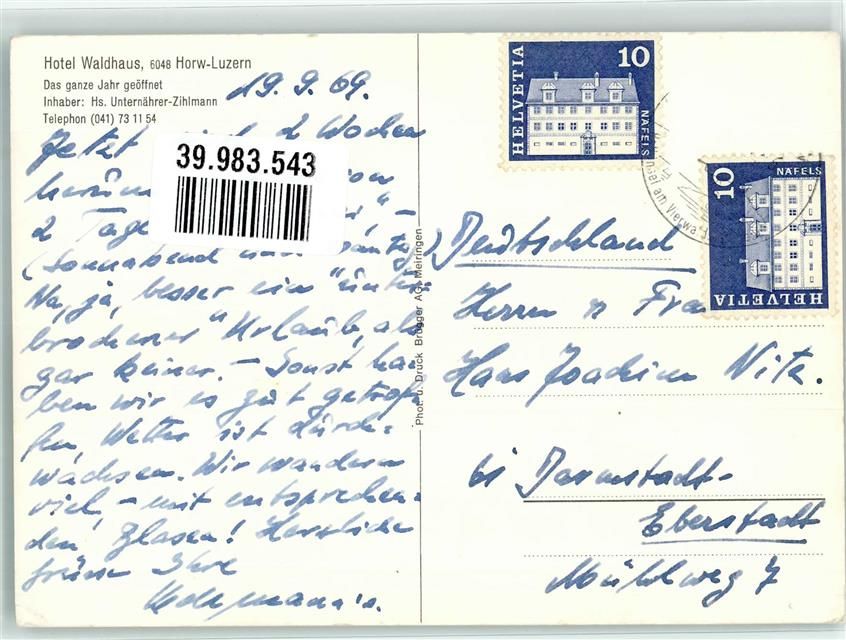 Hotel Waldhaus, 6048 Horw-Luzern
Das ganze Jahr geöffnet
Inhaber: Hs. Unternährer-Zihlmann
Telephon (041) 73 11 54
19. 9. 69.
Jetzt 2 Wochen
herum
2 Tage " –
(Sonnabend
Na, ja, besser ein "unter-
brochener" Urlaub, als
gar keiner. – Sonst ha-
ben wir es gut getrof-
fen, Wetter ist durch-
wachsen. Wir wandern
viel – mit entsprechen-
den Blasen! Herzliche
Grüsse Ihre
39.983.543
Phot. u. Druck Brügger AG, Meiringen
HELVETIA 10 NÄFELS
HELVETIA 10 NÄFELS
Insel am Vierwa
Deutschland
Herrn u Frau
Hans Joachim
bei Darmstadt-
Eberstadt
Mühlweg 7